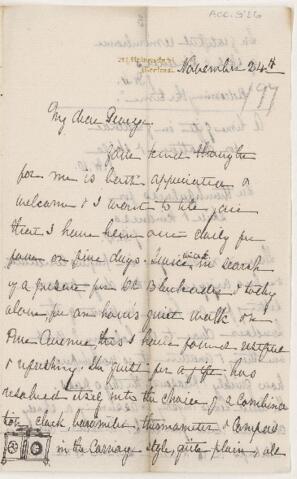 ACC. 526
November 24th
97
My dear George.
Your kind thought
for me is both appreciated &
welcome & I want to tell you
that I have been out daily for
four or five days. Twice in search
of a present for Dr Blackader, & today
alone for an hours quiet walk on
Pine Avenue, this I have found restful
& refreshing. The quest for a gift has
resolved itself into the choice of a combina
tion, clock, barometer, thermometer & compass
in the Carriage style, quite plain, all